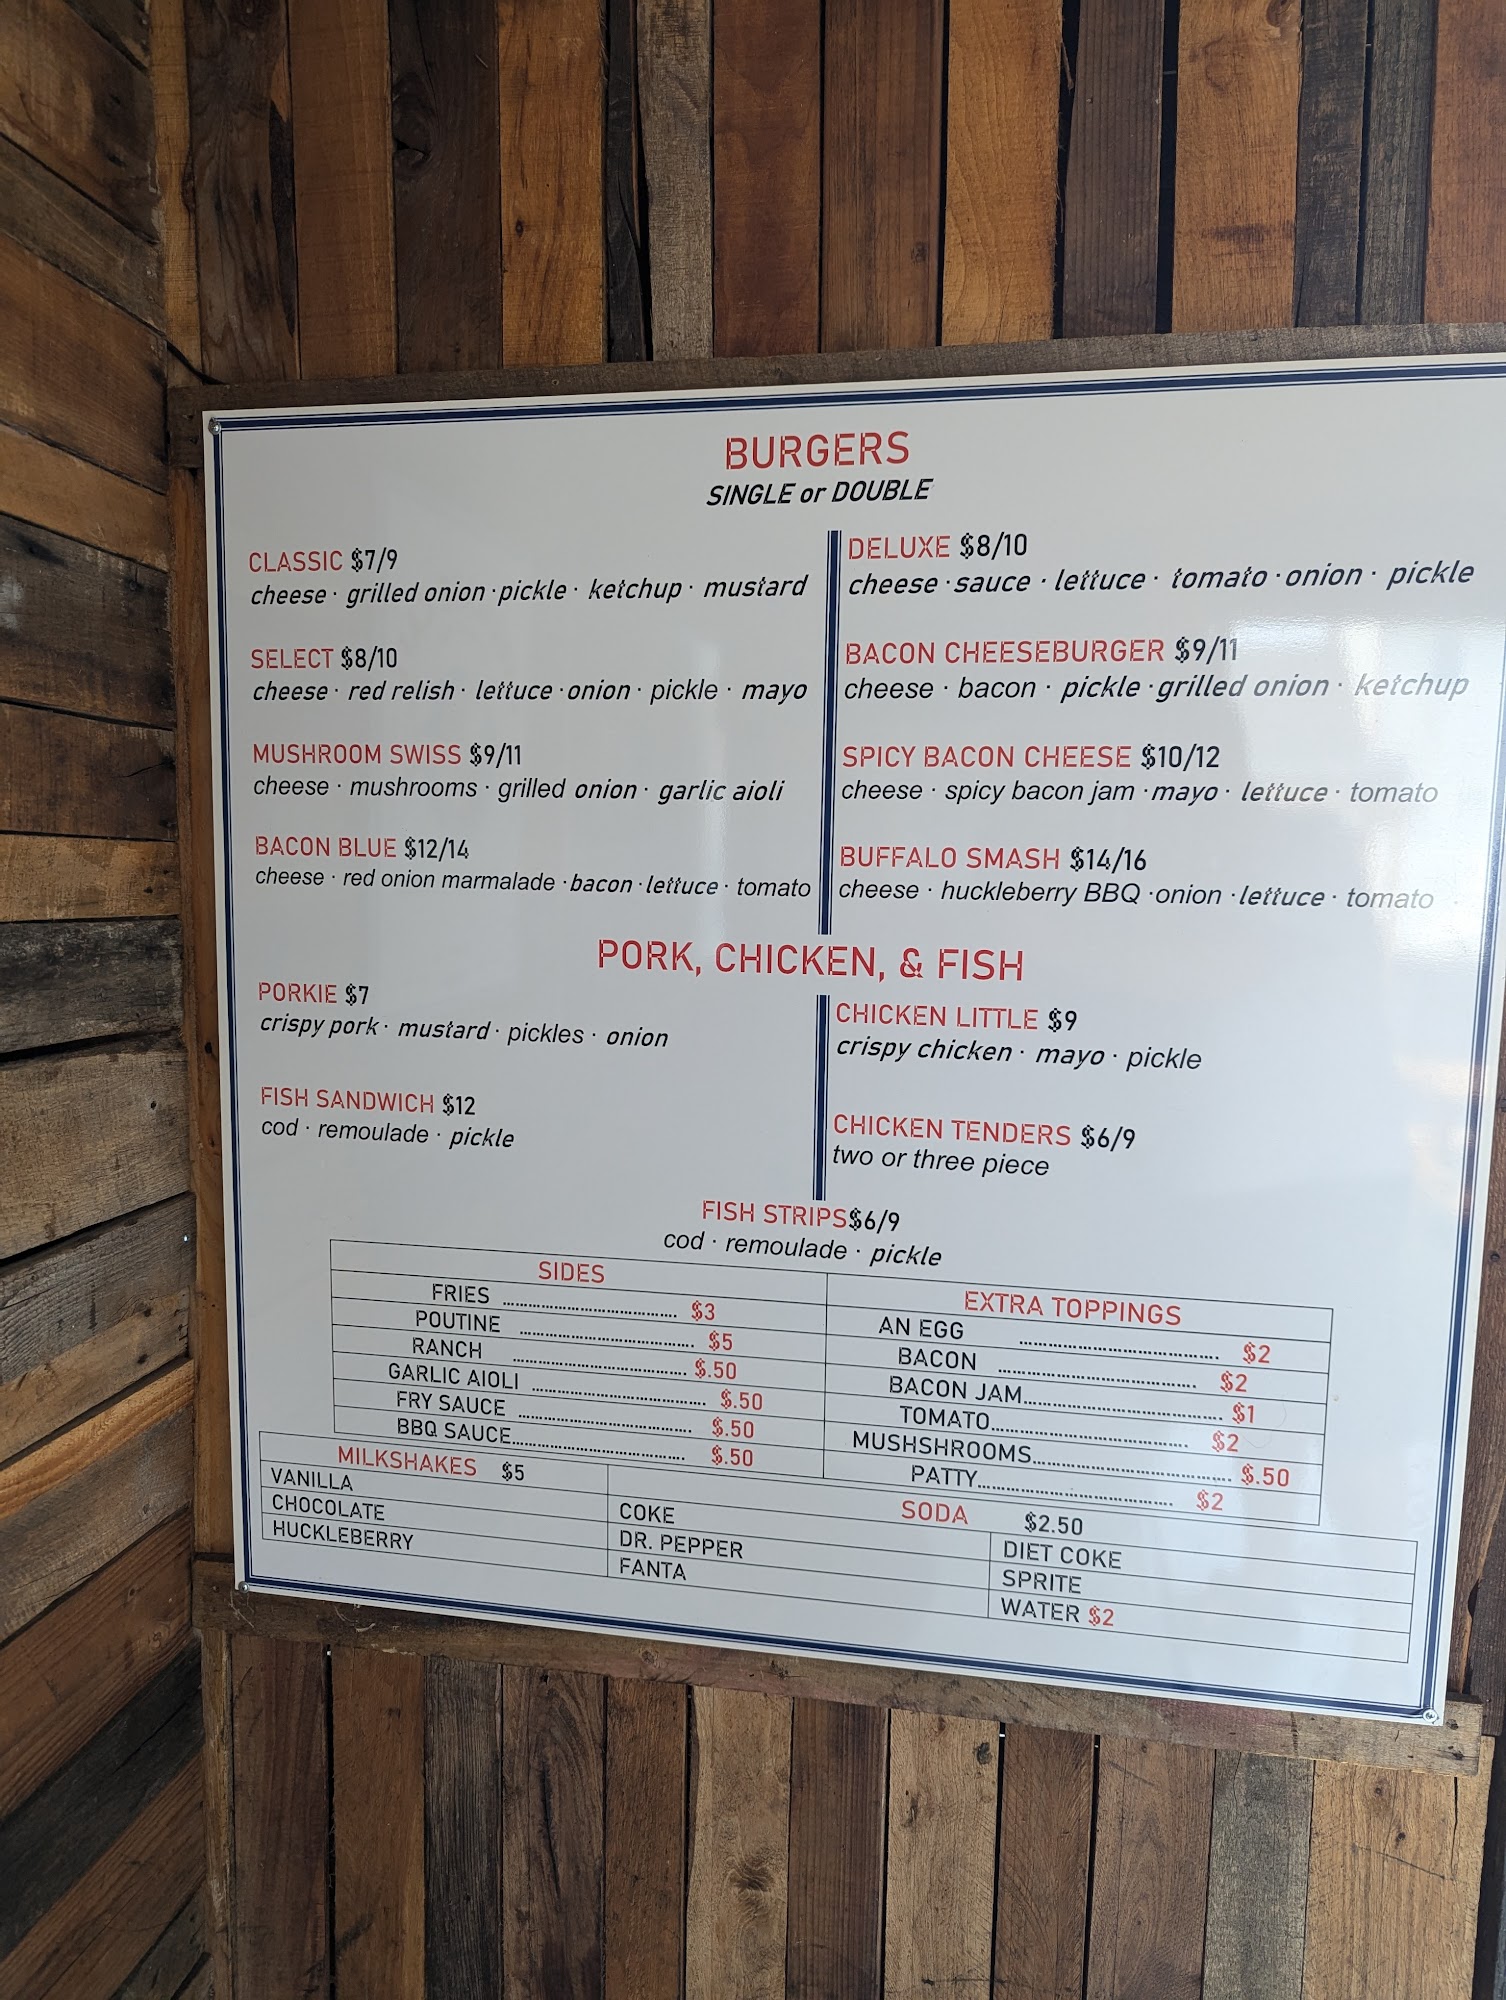 BURGERS
SINGLE or DOUBLE
CLASSIC $7/9
cheese · grilled onion · pickle · ketchup · mustard
SELECT $8/10
cheese · red relish · lettuce · onion · pickle · mayo
MUSHROOM SWISS $9/11
cheese · mushrooms · grilled onion · garlic aioli
BACON BLUE $12/14
cheese · red onion marmalade · bacon · lettuce · tomato
DELUXE $8/10
cheese · sauce · lettuce · tomato · onion · pickle
BACON CHEESEBURGER $9/11
cheese · bacon · pickle · grilled onion · ketchup
SPICY BACON CHEESE $10/12
cheese · spicy bacon jam · mayo · lettuce · tomato
BUFFALO SMASH $14/16
cheese · huckleberry BBQ · onion · lettuce · tomato
PORK, CHICKEN, & FISH
PORKIE $7
crispy pork · mustard · pickles · onion
FISH SANDWICH $12
cod · remoulade · pickle
CHICKEN LITTLE $9
crispy chicken · mayo · pickle
CHICKEN TENDERS $6/9
two or three piece
FISH STRIPS$6/9
cod · remoulade · pickle
SIDES
FRIES ........ $3
POUTINE ........ $5
RANCH ........ $.50
GARLIC AIOLI ........ $.50
FRY SAUCE ........ $.50
BBQ SAUCE........ $.50
EXTRA TOPPINGS
AN EGG ........ $2
BACON ........ $2
BACON JAM........ $1
TOMATO........ $2
MUSHSHROOMS........ $.50
PATTY........ $2
MILKSHAKES $5
VANILLA
CHOCOLATE
HUCKLEBERRY
SODA $2.50
COKE
DR. PEPPER
FANTA
DIET COKE
SPRITE
WATER $2